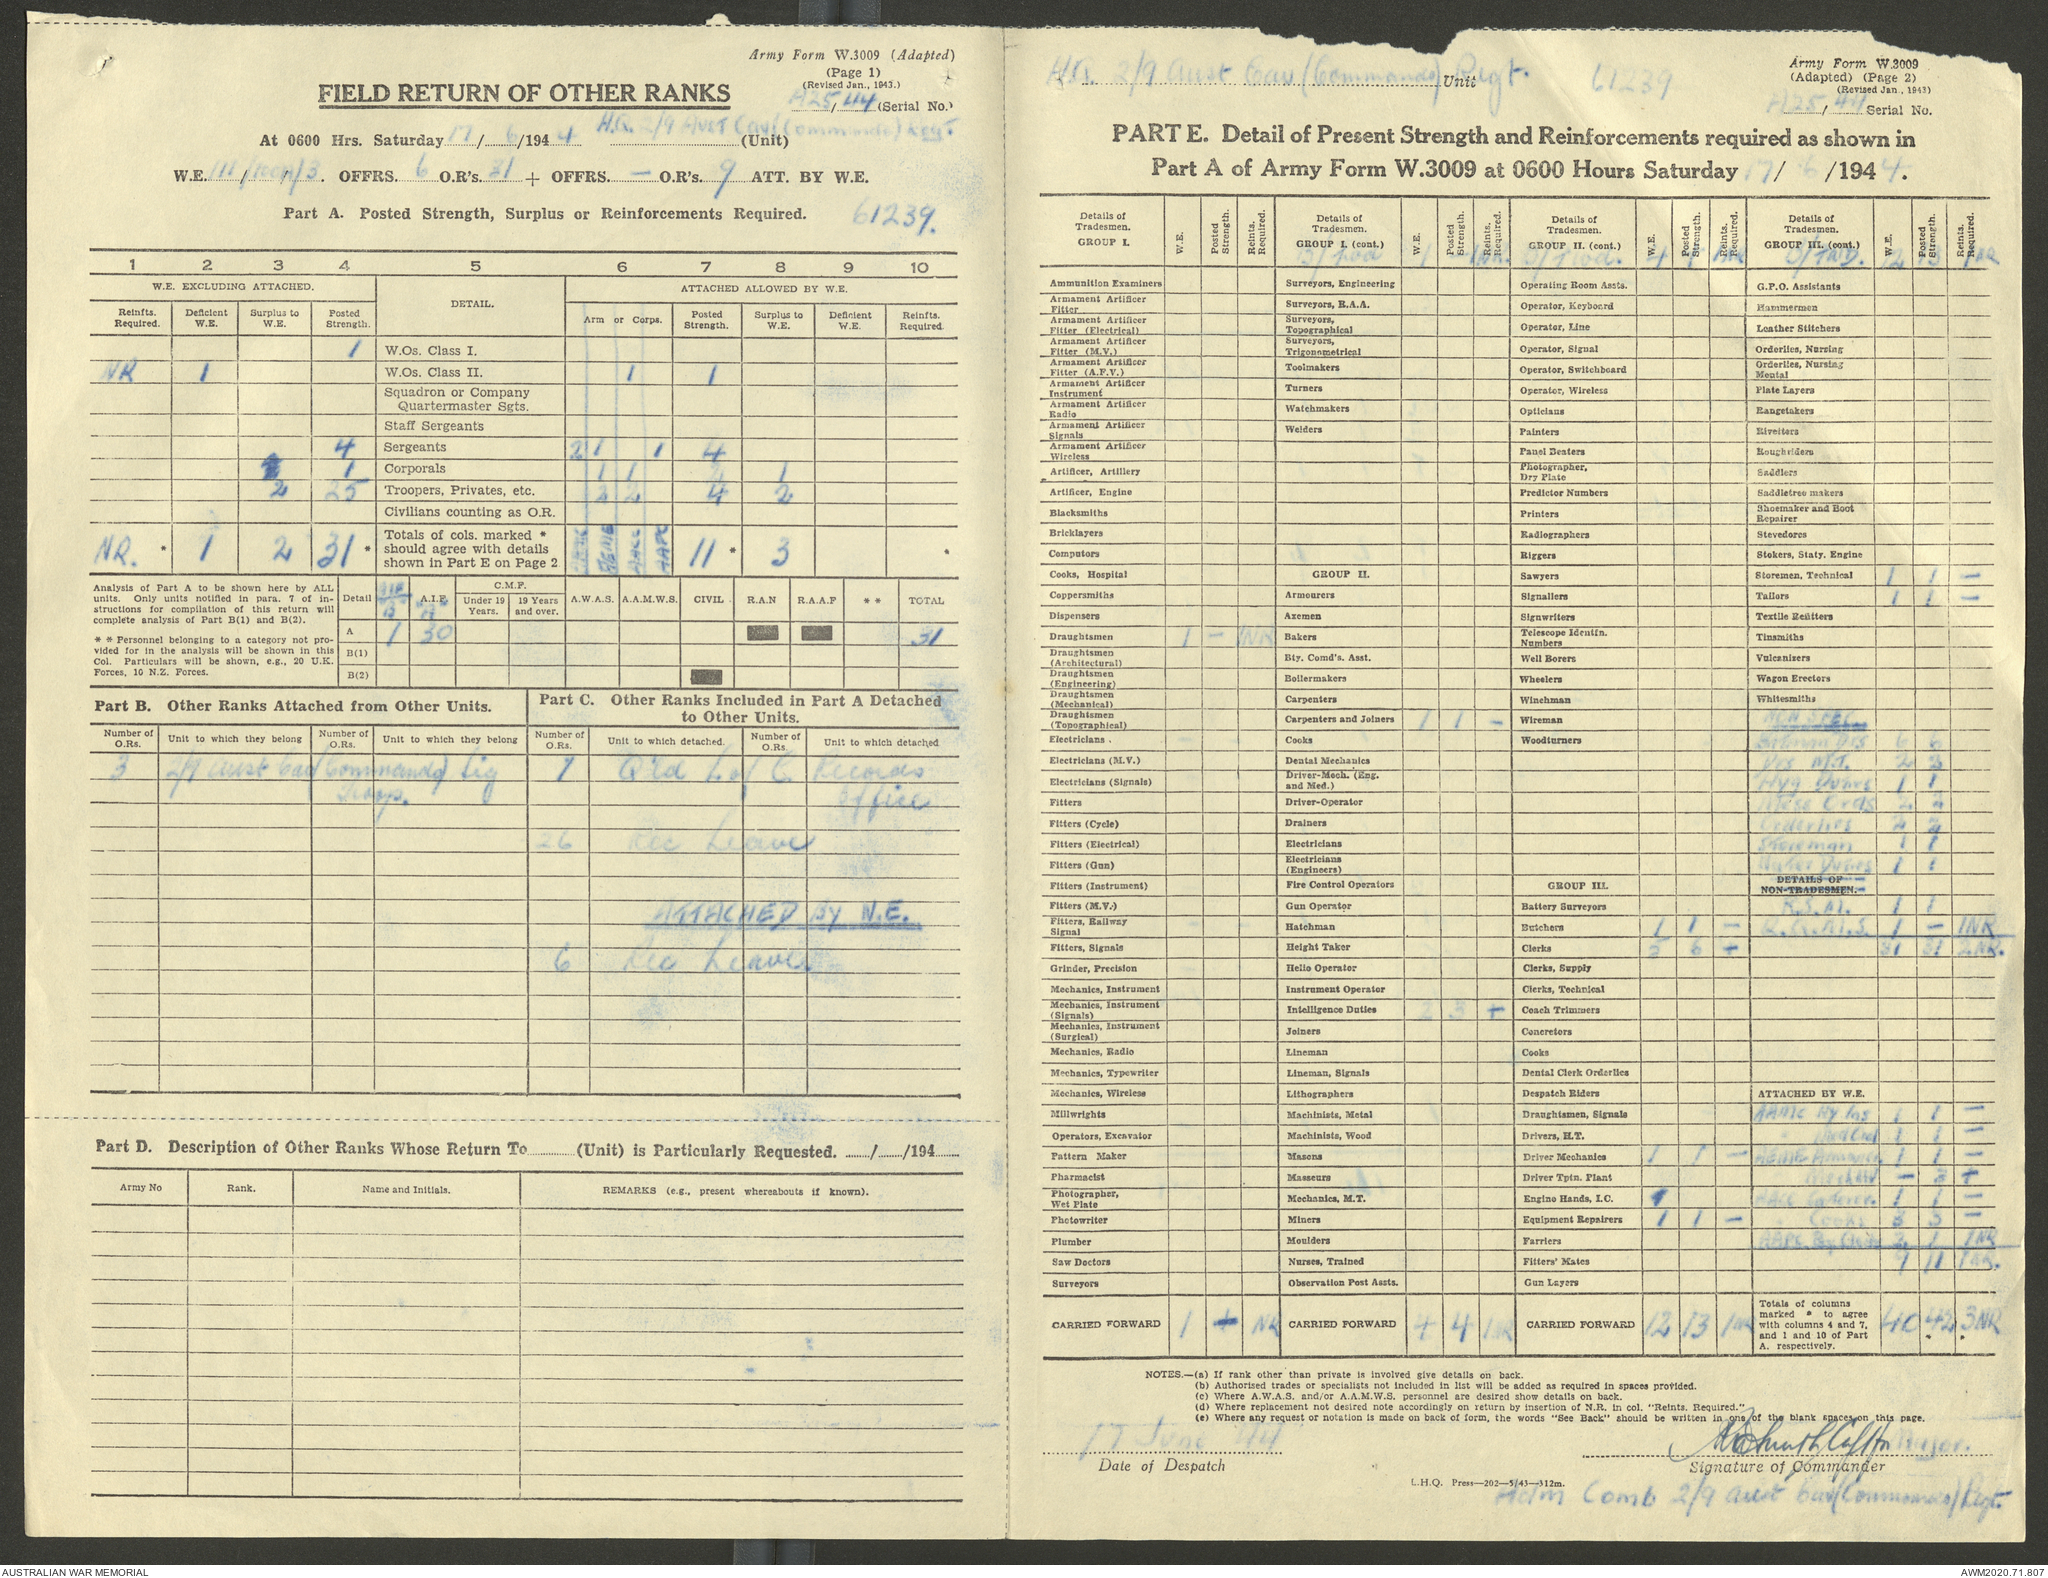 Army Form W.3009 (Adapted)
(Page 1)
(Revised Jan., 1943.)
FIELD RETURN OF OTHER RANKS
A25/44 (Serial No.)
At 0600 Hrs. Saturday 17/6/1944 H.Q. 2/9 Aust Cav (Commando) Regt (Unit)
W.E. 111/ /3. OFFRS. 6 O.R's. 31 + OFFRS. — O.R's. 9 ATT. BY W.E.
Part A. Posted Strength, Surplus or Reinforcements Required. 61239.
1 2 3 4 5 6 7 8 9 10
W.E. EXCLUDING ATTACHED. DETAIL. ATTACHED ALLOWED BY W.E.
Reinfts. Required. Deficient W.E. Surplus to W.E. Posted Strength. Arm or Corps. Posted Strength. Surplus to W.E. Deficient W.E. Reinfts. Required.
1 W.Os. Class I.
NR 1 W.Os. Class II. 1 1
Squadron or Company Quartermaster Sgts.
Staff Sergeants
4 Sergeants 2 1 1 4
1 Corporals 1 1 2 1
2 25 Troopers, Privates, etc. 2 2 4 2
Civilians counting as O.R.
NR. * 1 2 31 * Totals of cols. marked * should agree with details shown in Part E on Page 2 AAMC AEME AACC AAPC 11 * 3 *
Analysis of Part A to be shown here by ALL units. Only units notified in para. 7 of instructions for compilation of this return will complete analysis of Part B(1) and B(2).
* * Personnel belonging to a category not provided for in the analysis will be shown in this Col. Particulars will be shown, e.g., 20 U.K. Forces, 10 N.Z. Forces.
Detail AIF "B" A.I.F. "A" C.M.F. Under 19 Years. 19 Years and over. A.W.A.S. A.A.M.W.S. CIVIL R.A.N R.A.A.F * * TOTAL
A 1 30 31
B(1)
B(2)
Part B. Other Ranks Attached from Other Units.
Part C. Other Ranks Included in Part A Detached to Other Units.
Number of O.Rs. Unit to which they belong Number of O.Rs. Unit to which they belong Number of O.Rs. Unit to which detached. Number of O.Rs. Unit to which detached
3 2/9 Aust Cav (Commando) Sig Troop. 1 Q'ld L of C Records Office
26 Rec Leave
ATTACHED BY W.E.
6 Rec Leave
Part D. Description of Other Ranks Whose Return To (Unit) is Particularly Requested. / /194
Army No Rank. Name and Initials. REMARKS (e.g., present whereabouts if known).
H.Q. 2/9 Aust Cav (Commando) Regt. Unit 61239
Army Form W.3009
(Adapted) (Page 2)
(Revised Jan., 1943)
A25/44 Serial No.
PART E. Detail of Present Strength and Reinforcements required as shown in
Part A of Army Form W.3009 at 0600 Hours Saturday 17/6/1944.
Details of Tradesmen. GROUP I. W.E. Posted Strength. Reints. Required.
Ammunition Examiners
Armament Artificer Fitter
Armament Artificer Fitter (Electrical)
Armament Artificer Fitter (M.V.)
Armament Artificer Fitter (A.F.V.)
Armament Artificer Instrument
Armament Artificer Radio
Armament Artificer Signals
Armament Artificer Wireless
Artificer, Artillery
Artificer, Engine
Blacksmiths
Bricklayers
Computors
Cooks, Hospital
Coppersmiths
Dispensers
Draughtsmen 1 — 1NR
Draughtsmen (Architectural)
Draughtsmen (Engineering)
Draughtsmen (Mechanical)
Draughtsmen (Topographical)
Electricians .
Electricians (M.V.)
Electricians (Signals)
Fitters
Fitters (Cycle)
Fitters (Electrical)
Fitters (Gun)
Fitters (Instrument)
Fitters (M.V.)
Fitters, Railway Signal
Fitters, Signals
Grinder, Precision
Mechanics, Instrument
Mechanics, Instrument (Signals)
Mechanics, Instrument (Surgical)
Mechanics, Radio
Mechanics, Typewriter
Mechanics, Wireless
Millwrights
Operators, Excavator
Pattern Maker
Pharmacist
Photographer, Wet Plate
Photowriter
Plumber
Saw Doctors
Surveyors
CARRIED FORWARD 1 NR
Details of Tradesmen. GROUP I. (cont.) W.E. Posted Strength. Reints. Required.
B/Fwd 1 — 1NR.
Surveyors, Engineering
Surveyors, R.A.A.
Surveyors, Topographical
Surveyors, Trigonometrical
Toolmakers
Turners
Watchmakers
Welders
GROUP II.
Armourers
Axemen
Bakers
Bty. Comd's. Asst.
Boilermakers
Carpenters
Carpenters and Joiners 1 1 —
Cooks
Dental Mechanics
Driver-Mech. (Eng. and Med.)
Driver-Operator
Drainers
Electricians
Electricians (Engineers)
Fire Control Operators
Gun Operator
Hatchman
Height Taker
Hello Operator
Instrument Operator
Intelligence Duties 2 3 +
Joiners
Lineman
Lineman, Signals
Lithographers
Machinists, Metal
Machinists, Wood
Masons
Masseurs
Mechanics, M.T.
Miners
Moulders
Nurses, Trained
Observation Post Assts.
CARRIED FORWARD 4 4 1NR
Details of Tradesmen. GROUP II. (cont.) W.E. Posted Strength. Reints. Required.
B/Fwd. 4 4 1NR
Operating Room Assts.
Operator, Keyboard
Operator, Line
Operator, Signal
Operator, Switchboard
Operator, Wireless
Opticians
Painters
Panel Beaters
Photographer, Dry Plate
Predictor Numbers
Printers
Radiographers
Riggers
Sawyers
Signallers
Signwriters
Telescope Identfn. Numbers
Well Borers
Wheelers
Winchman
Wireman
Woodturners
GROUP III.
Battery Surveyors
Butchers 1 1 —
Clerks 5 6 +
Clerks, Supply
Clerks, Technical
Coach Trimmers
Concretors
Cooks
Dental Clerk Orderlies
Despatch Riders
Draughtsmen, Signals
Drivers, H.T.
Driver Mechanics 1 1 —
Driver Tptn. Plant
Engine Hands, I.C.
Equipment Repairers 1 1 —
Farriers
Fitters' Mates
Gun Layers
CARRIED FORWARD 12 13 1NR
Details of Tradesmen. GROUP III. (cont.) W.E. Posted Strength. Reints. Required.
B/FWD. 12 13 1NR
G.P.O. Assistants
Hammermen
Leather Stitchers
Orderlies, Nursing
Orderlies, Nursing Mental
Plate Layers
Rangetakers
Rivetters
Roughriders
Saddlers
Saddletree makers
Shoemaker and Boot Repairer
Stevedores
Stokers, Staty. Engine
Storemen, Technical 1 1 —
Tailors 1 1 —
Textile Refitters
Tinsmiths
Vulcanizers
Wagon Erectors
Whitesmiths
NON SPEC.
Batmn Drs 6 6
Drs M.T. 2 2
Hyg Duties 1 1
Mess Ords 2 2
Orderlies 2 2
Storeman 1 1
Water Duties 1 1
DETAILS OF NON-TRADESMEN.
R.S.M. 1 1
R.Q.M.S. 1 — 1NR
31 31 2NR.
ATTACHED BY W.E.
AAMC Hy Ins 1 1 —
" Med Ord 1 1 —
AEME Armourer 1 1 —
— 3 +
AACC Caterer. 1 1 —
Cooks 3 3 —
AAPC Pay Clerks 2 1 1NR
9 11 1NR.
Totals of columns marked * to agree with columns 4 and 7, and 1 and 10 of Part A. respectively. 40 42 * 3NR *
NOTES.—(a) If rank other than private is involved give details on back.
(b) Authorised trades or specialists not included in list will be added as required in spaces provided.
(c) Where A.W.A.S. and/or A.A.M.W.S. personnel are desired show details on back.
(d) Where replacement not desired note accordingly on return by insertion of N.R. in col. "Reints. Required."
(e) Where any request or notation is made on back of form, the words "See Back" should be written in one of the blank spaces on this page.
17 June 44
Date of Despatch
Major.
Signature of Commander
L.H.Q. Press—202—5/43—312m.
Adm Comd 2/9 Aust Cav (Commando) Regt.
AUSTRALIAN WAR MEMORIAL
AWM2020.71.807